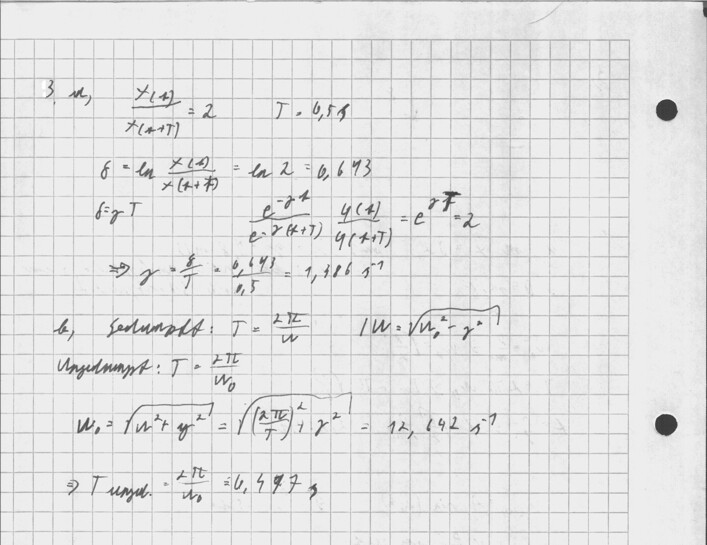 3. a, x(t)/x(t+T) = 2 T = 0,5s
δ = ln x(t)/x(t+T) = ln 2 = 0,693
δ = γT e^(-γt)/e^(-γ(t+T)) φ(t)/φ(t+T) = e^(γT) = 2
⇒ γ = δ/T = 0,693/0,5 = 1,386 s⁻¹
b, Gedämpft: T = 2π/ω / ω = √(ω₀² - γ²)
Ungedämpft: T = 2π/ω₀
ω₀ = √(ω² + γ²) = √((2π/T)² + γ²) = 12,642 s⁻¹
⇒ T unged. = 2π/ω₀ = 0,497 s